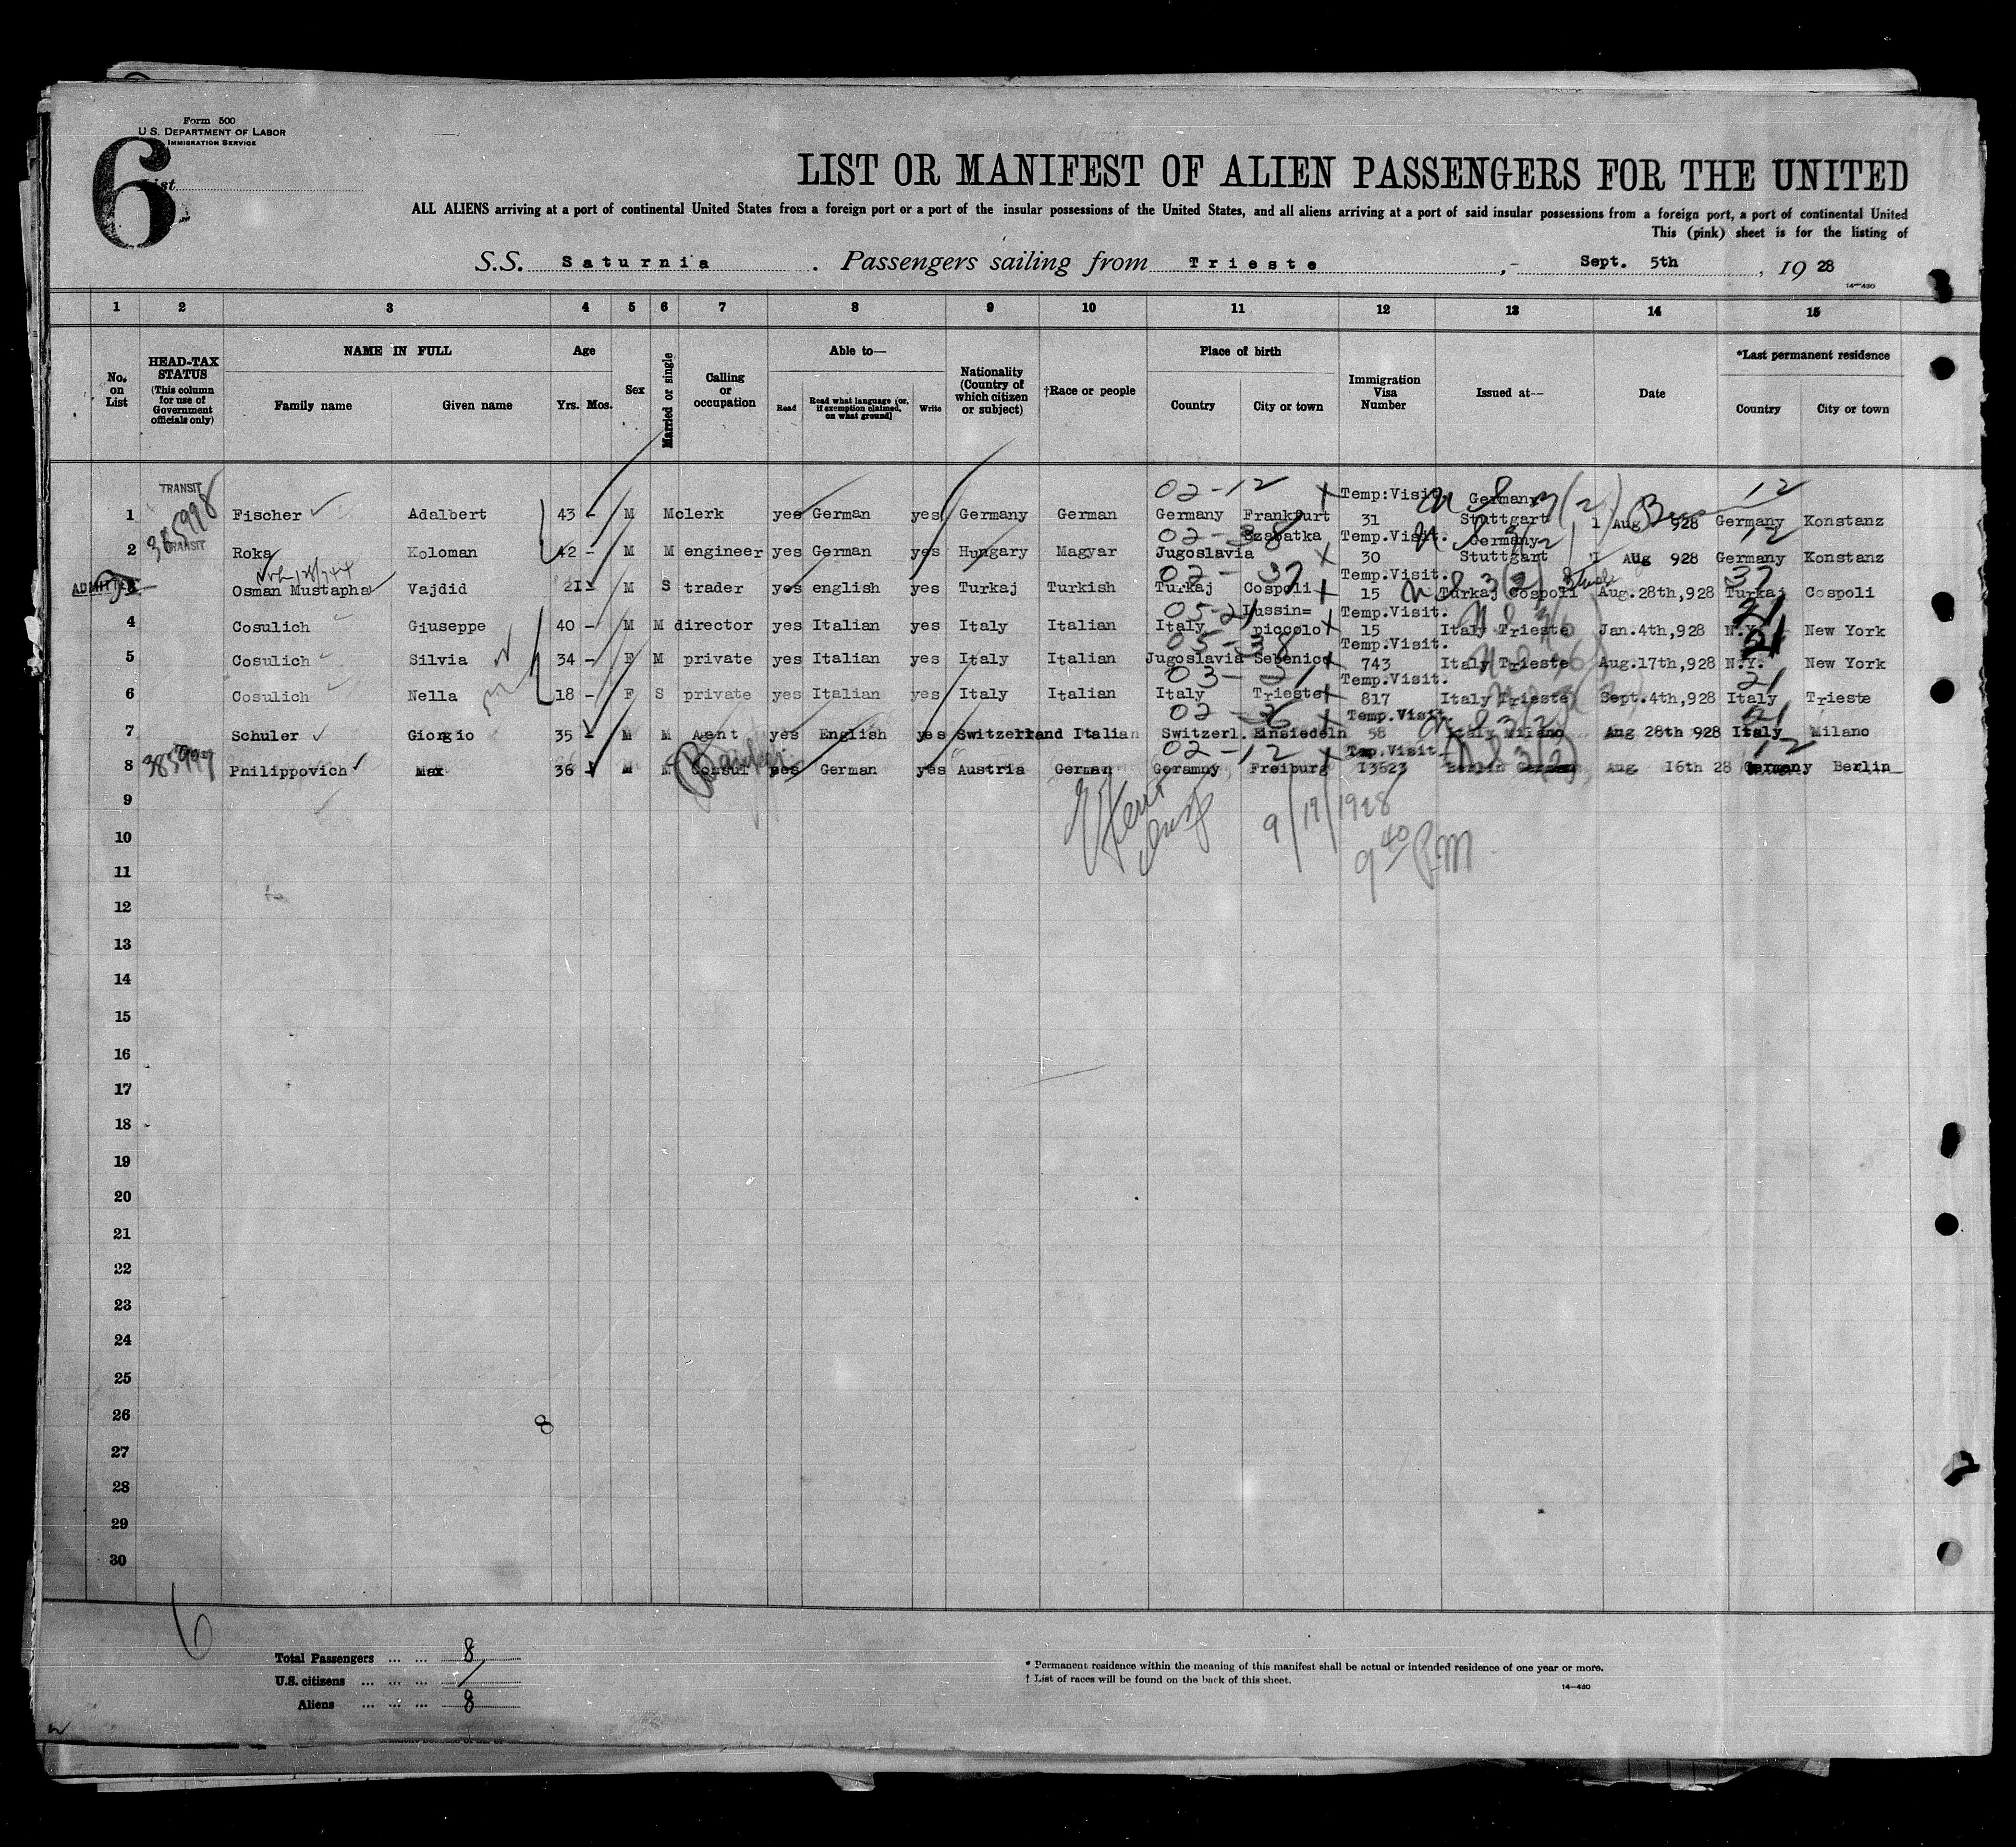 Form 500
U.S. DEPARTMENT OF LABOR
IMMIGRATION SERVICE
6
List
LIST OR MANIFEST OF ALIEN PASSENGERS FOR THE UNITED
ALL ALIENS arriving at a port of continental United States from a foreign port or a port of the insular possessions of the United States, and all aliens arriving at a port of said insular possessions from a foreign port, a port of continental United
This (pink) sheet is for the listing of
S.S. Saturnia . Passengers sailing from Trieste ,- Sept. 5th , 19 28
14—430
1 2 3 4 5 6 7 8 9 10 11 12 13 14 15
No. on List
HEAD-TAX STATUS (This column for use of Government officials only)
NAME IN FULL
Family name Given name
Age
Yrs. Mos.
Sex
Married or single
Calling or occupation
Able to—
Read
Read what language (or, if exemption claimed, on what ground)
Write
Nationality (Country of which citizen or subject)
†Race or people
Place of birth
Country City or town
Immigration Visa Number
Issued at—
Date
*Last permanent residence
Country City or town
TRANSIT 385998 02-12 Temp:Visit. Germany 12
1 Fischer Adalbert 43 - M M clerk yes German yes Germany German Germany Frankfurt 31 Stuttgart 1 Aug 928 Germany Konstanz
TRANSIT 02-38 Szabatka Temp.Visit. Germany 12
2 Roka Koloman 42 - M M engineer yes German yes Hungary Magyar Jugoslavia 30 Stuttgart 1 Aug 928 Germany Konstanz
ADMITTED 02-37 Temp.Visit. 37
3 Osman Mustapha Vajdid 21- M S trader yes english yes Turkaj Turkish Turkaj Cospoli 15 Turkaj Cospoli Aug.28th,928 Turkaj Cospoli
05-21 Lussin= Temp.Visit. 21
4 Cosulich Giuseppe 40 - M M director yes Italian yes Italy Italian Italy piccolo 15 Italy Trieste Jan.4th,928 N.Y. New York
05-38 Temp.Visit. 21
5 Cosulich Silvia 34 - F M private yes Italian yes Italy Italian Jugoslavia Sebenico 743 Italy Trieste Aug.17th,928 N.Y. New York
03-21 Temp.Visit. 21
6 Cosulich Nella 18 - F S private yes Italian yes Italy Italian Italy Trieste 817 Italy Trieste Sept.4th,928 Italy Trieste
02-36 Temp.Visit. 21
7 Schuler Giorgio 35 - M M Agent yes English yes Switzerland Italian Switzerl. Einsiedeln 58 Italy Milano Aug 28th 928 Italy Milano
385999 02-12 Tmp.Visit. 12
8 Philippovich Max 36 - M M Consul yes German yes Austria German Geramny Freiburg 13623 Berlin German Aug 16th 28 Germany Berlin
9
9/17/1928
10
9 40 P.M
11
12
13
14
15
16
17
18
19
20
21
22
23
24
25
26 8
27
28
29
30
6
Total Passengers ... ... 8
U.S. citizens ... ... ... /
Aliens ... ... ... 8
* Permanent residence within the meaning of this manifest shall be actual or intended residence of one year or more.
† List of races will be found on the back of this sheet.
14—430